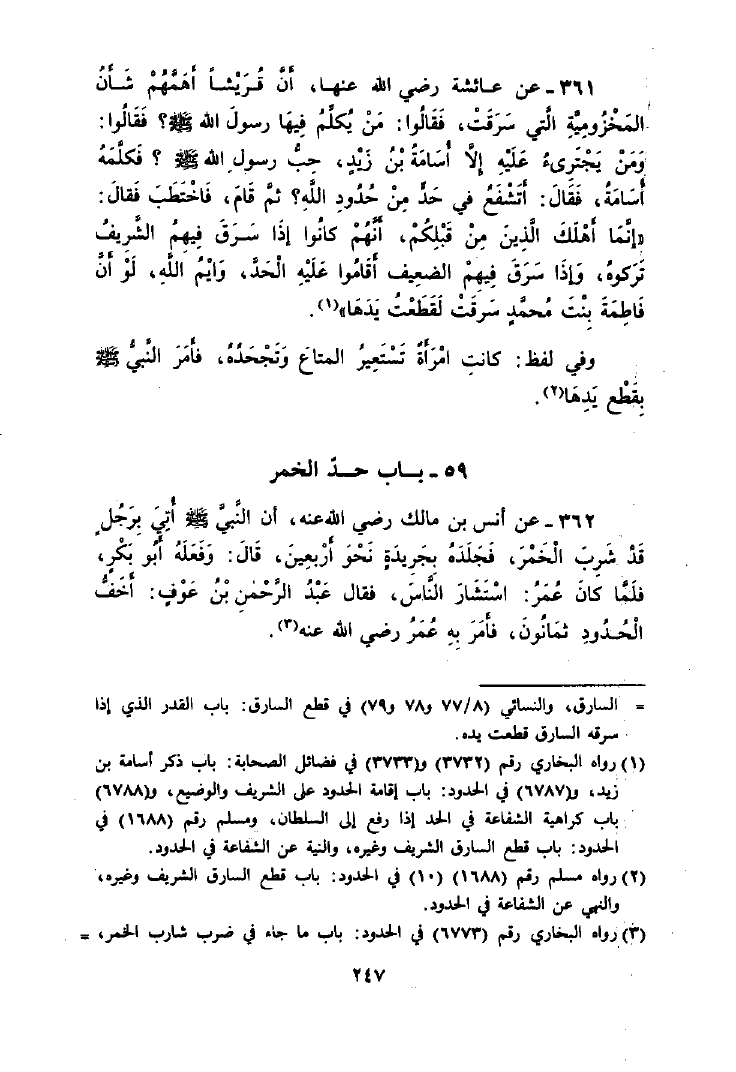 ٣٦١ ـ عن عائشة رضي الله عنها، أَنَّ قُرَيْشاً أَهَمَّهُمْ شَأْنُ
المَخْزُومِيَّةِ الَّتي سَرَقَتْ، فَقَالُوا: مَنْ يُكَلِّمُ فِيهَا رسولَ الله ﷺ؟ فَقَالُوا:
وَمَنْ يَجْتَرِىءُ عَلَيْهِ إِلَّا أُسَامَةُ بْنُ زَيْدٍ، حِبُّ رسولِ الله ﷺ ؟ فَكَلَّمَهُ
أُسَامَةُ، فَقَالَ: أَتَشْفَعُ في حَدٍّ مِنْ حُدُودِ اللَّهِ؟ ثمَّ قَامَ، فَاخْتَطَبَ فَقالَ:
«إِنَّمَا أَهْلَكَ الَّذِينَ مِنْ قَبْلِكُمْ، أَنَّهُمْ كانُوا إِذَا سَرَقَ فِيهِمُ الشَّرِيفُ
تَرَكوهُ، وَإِذَا سَرَقَ فِيهِمُ الضعِيف أَقَامُوا عَلَيْهِ الْحَدَّ، وَايْمُ اللَّهِ، لَوْ أَنَّ
فَاطِمَةَ بِنْتَ مُحمَّدٍ سَرقَتْ لَقَطَعْتُ يَدَهَا»(١).
وفي لفظ: كانتِ امْرَأَةٌ تَسْتَعِيرُ المتَاعَ وَتَجْحَدُهُ، فأَمَرَ النَّبيُّ ﷺ
بِقَطْعِ يَدِهَا(٢).
٥٩ ـ بـاب حـدّ الخمر
٣٦٢ ـ عن أنس بن مالك رضي الله عنه، أن النَّبيَّ ﷺ أُتِيَ بِرَجُلٍ
قَدْ شَرِبَ الْخَمْرَ، فَجَلَدَهُ بِجَرِيدَةٍ نَحْوَ أَرْبَعِينَ، قَالَ: وَفَعَلَهُ أَبُو بَكْرٍ،
فلَمَّا كانَ عُمَرُ: اسْتَشَارَ النَّاسَ، فقال عَبْدُ الرَّحْمٰنِ بْنُ عَوْفٍ: أَخَفُّ
الْحُدُودِ ثمَانُونَ، فَأَمَرَ بِهِ عُمَرُ رضي الله عنه(٣).
= السارق، والنسائي (٧٧/٨ و٧٨ و٧٩) في قطع السارق: باب القدر الذي إذا
سرقه السارق قطعت يده.
(١) رواه البخاري رقم (٣٧٣٢) و(٣٧٣٣) في فضائل الصحابة: باب ذكر أسامة بن
زيد، و(٦٧٨٧) في الحدود: باب إقامة الحدود على الشريف والوضيع، و(٦٧٨٨)
باب كراهية الشفاعة في الحد إذا رفع إلى السلطان، ومسلم رقم (١٦٨٨) في
الحدود: باب قطع السارق الشريف وغيره، والنية عن الشفاعة في الحدود.
(٢) رواه مسلم رقم (١٦٨٨) (١٠) في الحدود: باب قطع السارق الشريف وغيره،
والنهي عن الشفاعة في الحدود.
(٣) رواه البخاري رقم (٦٧٧٣) في الحدود: باب ما جاء في ضرب شارب الخمر، =
٢٤٧